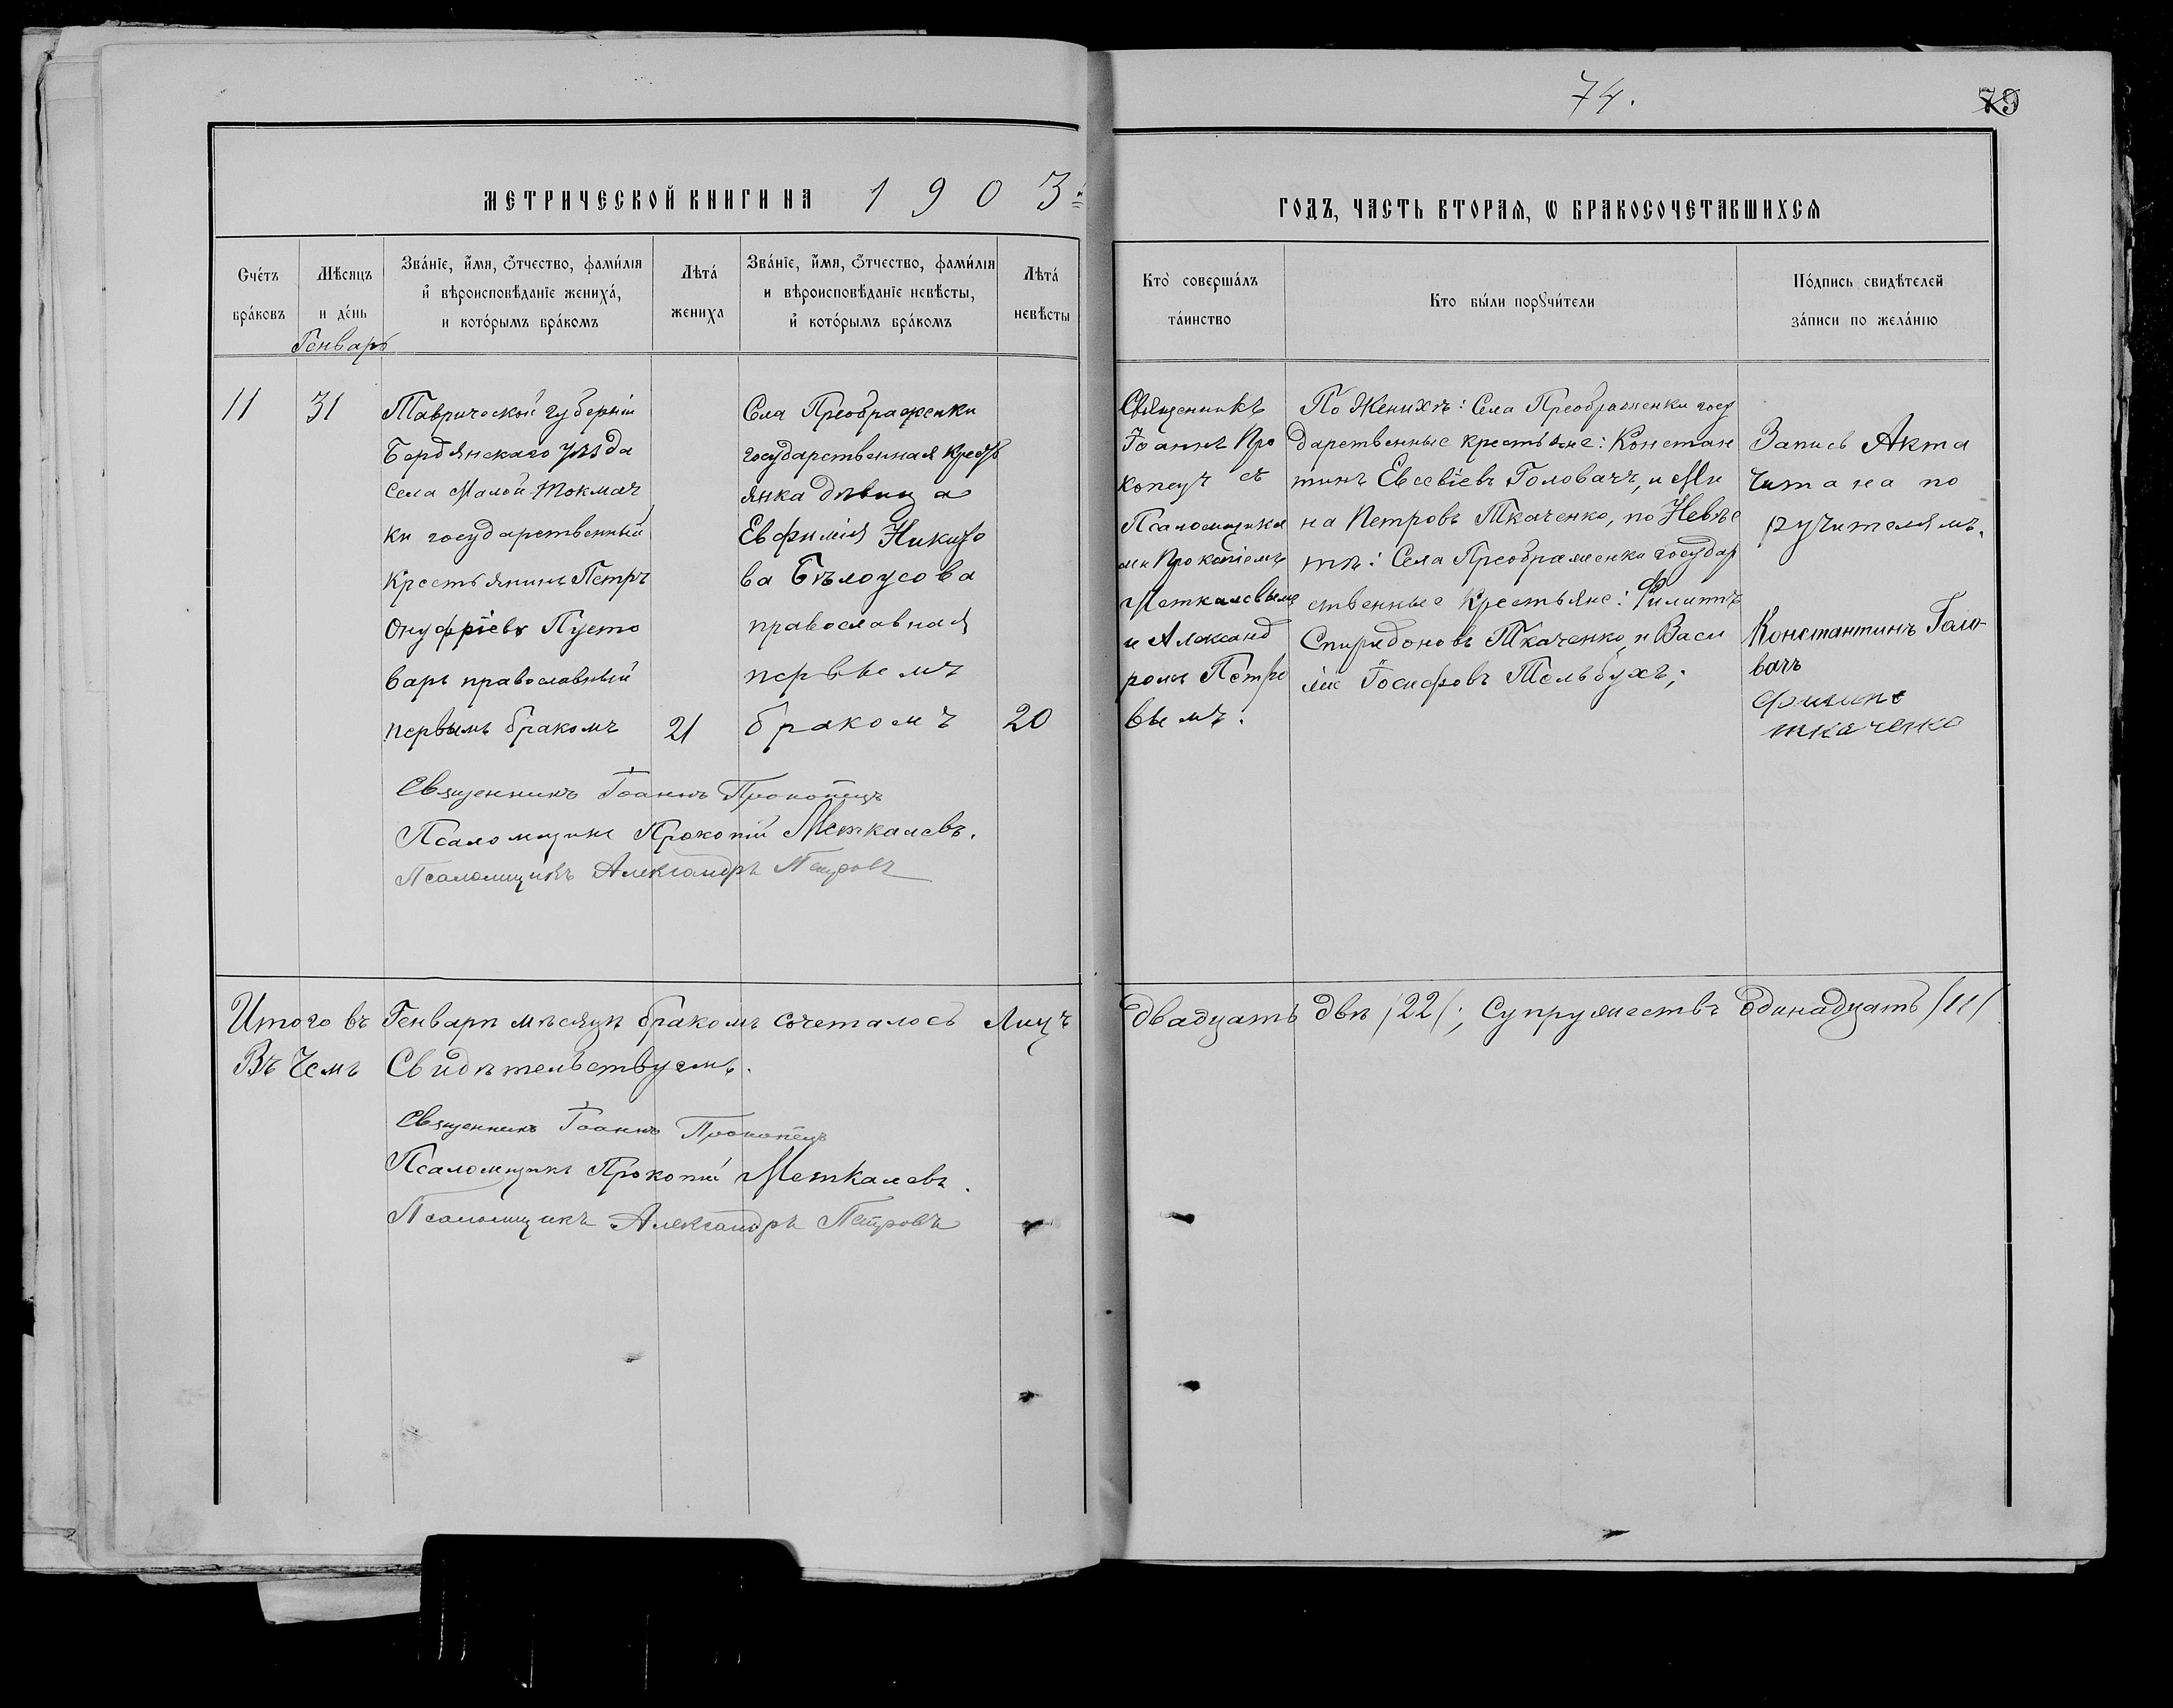 74.
79
МЕТРИЧЕСКОЙ КНИГИ НА 1903й
ГОДЪ, ЧАСТЬ ВТОРАЯ, Ѡ БРАКОСОЧЕТАВШИХСЯ
Счетъ
браковъ
Мѣсяцъ
и день
Генварь
Званіе, имя, отчество, фамилія
и вѣроисповѣданіе жениха,
и которымъ бракомъ
Лѣта
жениха
Званіе, имя, отчество, фамилія
и вѣроисповѣданіе невѣсты,
и которымъ бракомъ
Лѣта
невѣсты
Кто совершалъ
таинство
Кто были поручители
Подпись свидѣтелей
записи по желанію
11
31
Таврической губерніи
Бердянскаго уѣзда
села Малой Токмач
ки государственный
крестьянинъ Петръ
Онуфріевъ Пусто
варъ православный
первымъ бракомъ
21
Села Преображенки
государственная кресть
янка дѣвица
Евфимія Никифо
ва Бѣлоусова
православная
первымъ
бракомъ
20
Священникъ
Іоаннъ Про
копецъ съ
Псаломщика
ми Прокопіемъ
Меткалевымъ
и Александ
ромъ Петро
вымъ.
По Женихѣ: Села Преображенки госу
дарственные крестьяне: Констан
тинъ Евсевіевъ Головачъ, и Ми
на Петровъ Ткаченко, по Невѣс
тѣ: Села Преображенки государ
ственные Крестьяне: Филиппъ
Спиридоновъ Ткаченко, и Васи
лій Іосифовъ Тельбухъ;
Запись Акта
читана по
ручителямъ.
Константинъ Голо-
вачъ
Филипъ
ткаченко
Священникъ Іоаннъ Прокопецъ
Псаломщикъ Прокопій Меткалевъ.
Псаломщикъ Александръ Петровъ
Итого въ Генварѣ мѣсяцѣ бракомъ сочеталось Лицъ двадцать двѣ /22/; Супружествъ одинадцать /11/
Въ Чемъ Свидѣтельствуемъ.
Священникъ Іоаннъ Прокопецъ
Псаломщикъ Прокопій Меткалевъ.
Псаломщикъ Александръ Петровъ